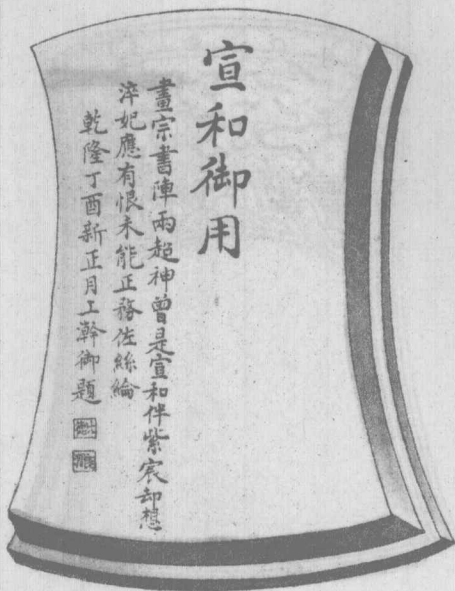 宣和御用
畫宗書陣兩超神曾是宣和伴紫宸却想
淬妃應有恨未能正務佐絲綸
乾隆丁酉新正月上澣御題